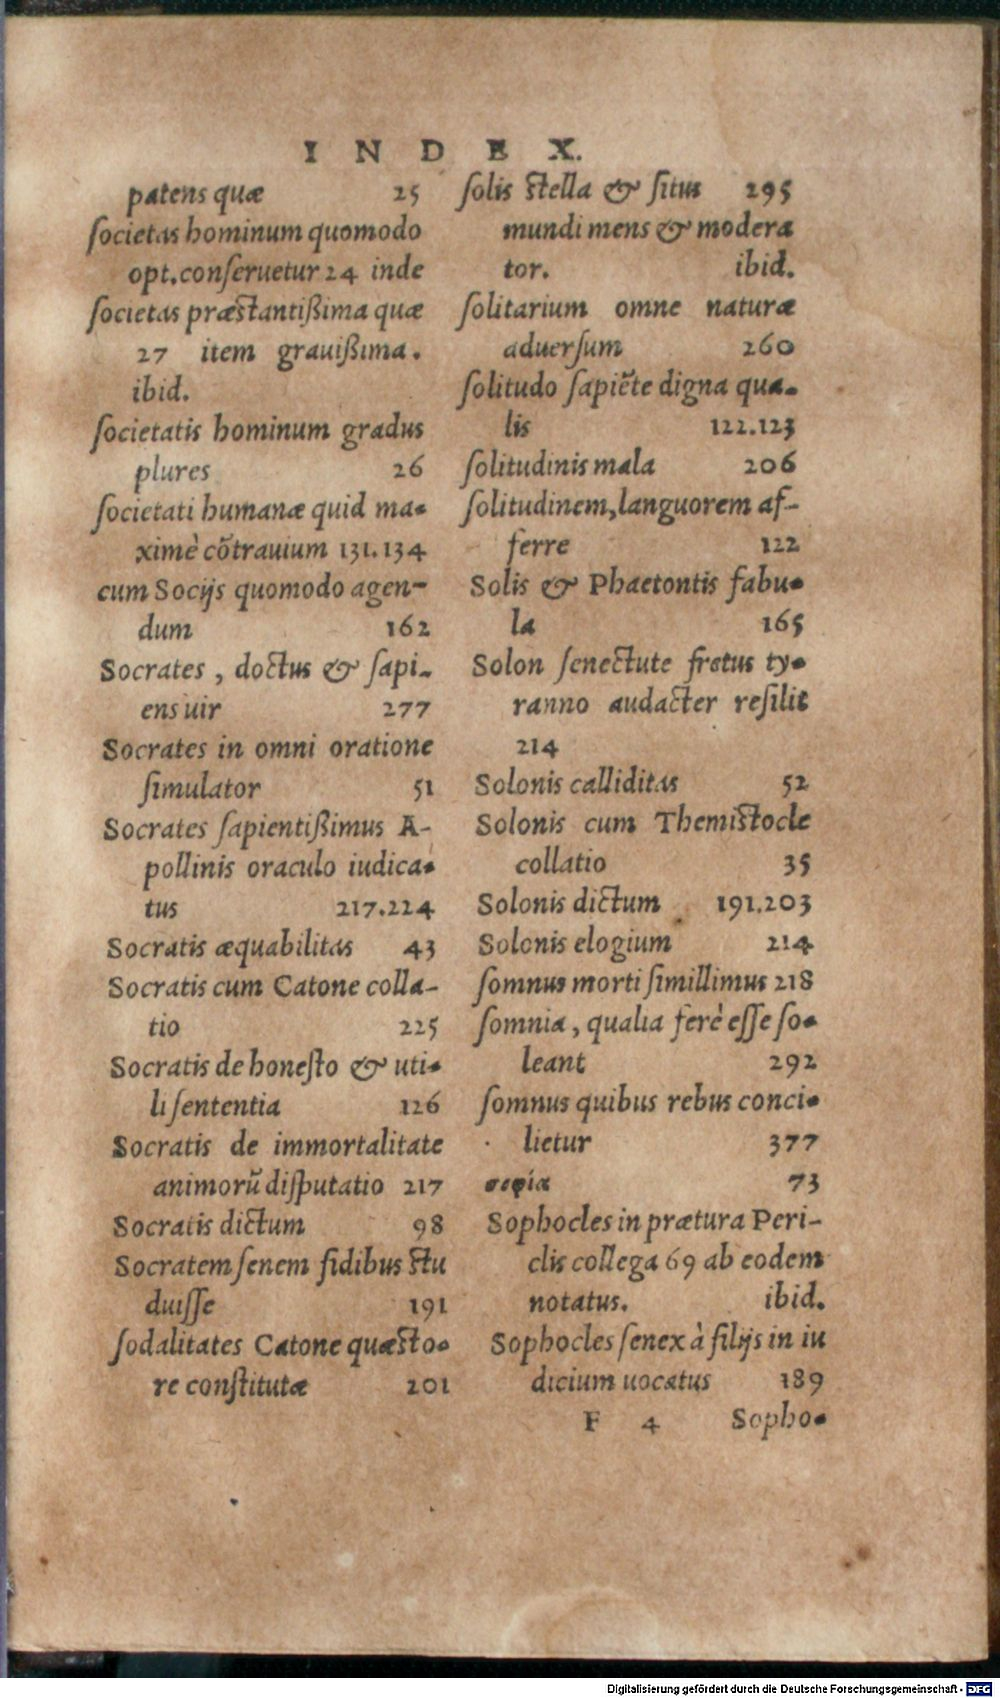 INDEX.
patens quæ 25
ſocietas hominum quomodo
opt.conſeruetur 24 inde
ſocietas præſtantißima quæ
27 item grauißima.
ibid.
ſocietatis hominum gradus
plures 26
ſocietati humanæ quid ma-
ximè cõtrauium 131.134
cum Socijs quomodo agen-
dum 162
Socrates, doctus & ſapi-
ens uir 277
Socrates in omni oratione
ſimulator 51
Socrates ſapientißimus A-
pollinis oraculo iudica-
tus 217.224
Socratis æquabilitas 43
Socratis cum Catone colla-
tio 225
Socratis de honeſto & uti-
li ſententia 126
Socratis de immortalitate
animorũ diſputatio 217
Socratis dictum 98
Socratem ſenem fidibus ſtu
duiſſe 191
ſodalitates Catone quæſto-
re conſtitutæ 201
ſolis ſtella & ſitus 295
mundi mens & modera
tor. ibid.
ſolitarium omne naturæ
aduerſum 260
ſolitudo ſapiẽte digna qua-
lis 122.123
ſolitudinis mala 206
ſolitudinem,languorem af-
ferre 122
Solis & Phaetontis fabu-
la 165
Solon ſenectute fretus ty-
ranno audacter reſilit
214
Solonis calliditas 52
Solonis cum Themiſtocle
collatio 35
Solonis dictum 191.203
Solonis elogium 214
ſomnus morti ſimillimus 218
ſomnia, qualia ferè eſſe ſo-
leant 292
ſomnus quibus rebus conci-
lietur 377
73
Sophocles in prætura Peri-
clis collega 69 ab eodem
notatus. ibid.
Sophocles ſenex à filijs in iu
dicium uocatus 189
F 4 Sopho-
Digitalisierung gefördert durch die Deutsche Forschungsgemeinschaft - DFG